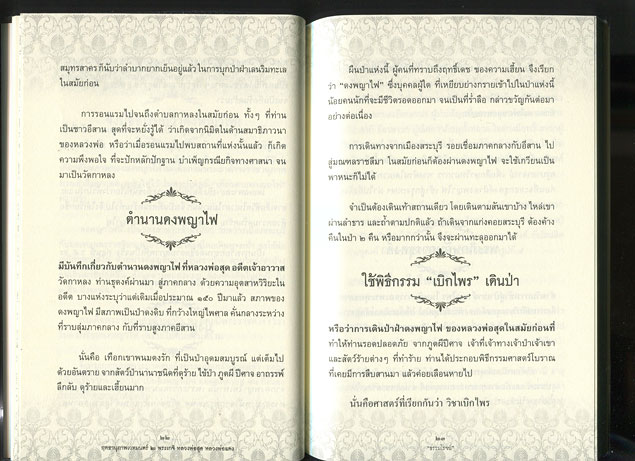 สมุทรสาคร ก็นับว่าลำบากยากเย็นอยู่แล้ว ในการบุกป่าฝ่าเลนริมทะเล
ในสมัยก่อน
การรอนแรมไปจนถึงตำบลกาหลงในสมัยก่อน ทั้งๆ ที่ท่าน
เป็นชาวอีสาน สุดที่จะหยั่งรู้ได้ ว่าเกิดจากนิมิตในด้านสมาธิภาวนา
ของหลวงพ่อ หรือว่าเมื่อรอนแรมไปพบสถานที่แห่งนั้นแล้ว ก็เกิด
ความพึงพอใจ ที่จะปักหลักปักฐาน บำเพ็ญกรณียกิจทางศาสนา จน
มาเป็นวัดกาหลง
ตำนานดงพญาไฟ
มีบันทึกเกี่ยวกับตำนานดงพญาไฟ ที่หลวงพ่อสุด อดีตเจ้าอาวาส
วัดกาหลง ท่านธุดงค์ผ่านมา สู่ภาคกลาง ด้วยความอุตสาหวิริยะใน
อดีต บางแห่งระบุว่าแต่เดิมเมื่อประมาณ ๑๕๐ ปีมาแล้ว สภาพของ
ดงพญาไฟ มีสภาพเป็นป่าดงดิบ ที่กว้างใหญ่ไพศาล คั่นกลางระหว่าง
ที่ราบลุ่มภาคกลาง กับที่ราบสูงภาคอีสาน
นั่นคือ เทือกเขาพนมดงรัก ที่เป็นป่าอุดมสมบูรณ์ แต่เต็มไป
ด้วยอันตราย จากสัตว์ป่านานาชนิดที่ดุร้าย ไข้ป่า ภูตผี ปีศาจ อาถรรพ์
ลึกลับ ดุร้ายและเฮี้ยนมาก
๒๒
ยุทธานุภาพเวทมนตร์ ๒ พระเกจิ หลวงพ่อสุด หลวงพ่อแดง
ผืนป่าแห่งนี้ ผู้คนที่ทราบถึงฤทธิ์เดช ของความเฮี้ยน จึงเรียก
ว่า “ดงพญาไฟ” ซึ่งบุคคลผู้ใด ที่เหยียบย่างกรายเข้าไปในป่าแห่งนี้
น้อยคนนักที่จะมีชีวิตรอดออกมา จนเป็นที่ร่ำลือ กล่าวขวัญกันต่อมา
อย่างต่อเนื่อง
การเดินทางจากเมืองสระบุรี รอยเชื่อมภาคกลางกับอีสาน ไป
สู่มณฑลราชสีมา ในสมัยก่อนก็ต้องผ่านดงพญาไฟ จะใช้เกวียนเป็น
พาหนะก็ไม่ได้
จำเป็นต้องเดินเท้าสถานเดียว โดยเดินตามสันเขาบ้าง ไหล่เขา
ผ่านลำธาร และถ้ำตามปกติแล้ว ถ้าเดินจากแก่งคอยสระบุรี ต้องค้าง
คืนในป่า ๒ คืน หรือมากกว่านั้น จึงจะผ่านทะลุออกมาได้
ใช้พิธีกรรม “เบิกไพร” เดินป่า
หรือว่าการเดินป่าฝ่าดงพญาไฟ ของหลวงพ่อสุดในสมัยก่อนที่
ทำให้ท่านรอดปลอดภัย จากภูตผีปีศาจ เจ้าที่เจ้าทางเจ้าป่าเจ้าเขา
และสัตว์ร้ายต่างๆ ที่ทำร้าย ท่านได้ประกอบพิธีกรรมศาสตร์โบราณ
ที่เคยมีการสืบสานมา แล้วค่อยเลือนหายไป
นั่นคือศาสตร์ที่เรียกกันว่า วิชาเบิกไพร
๒๓